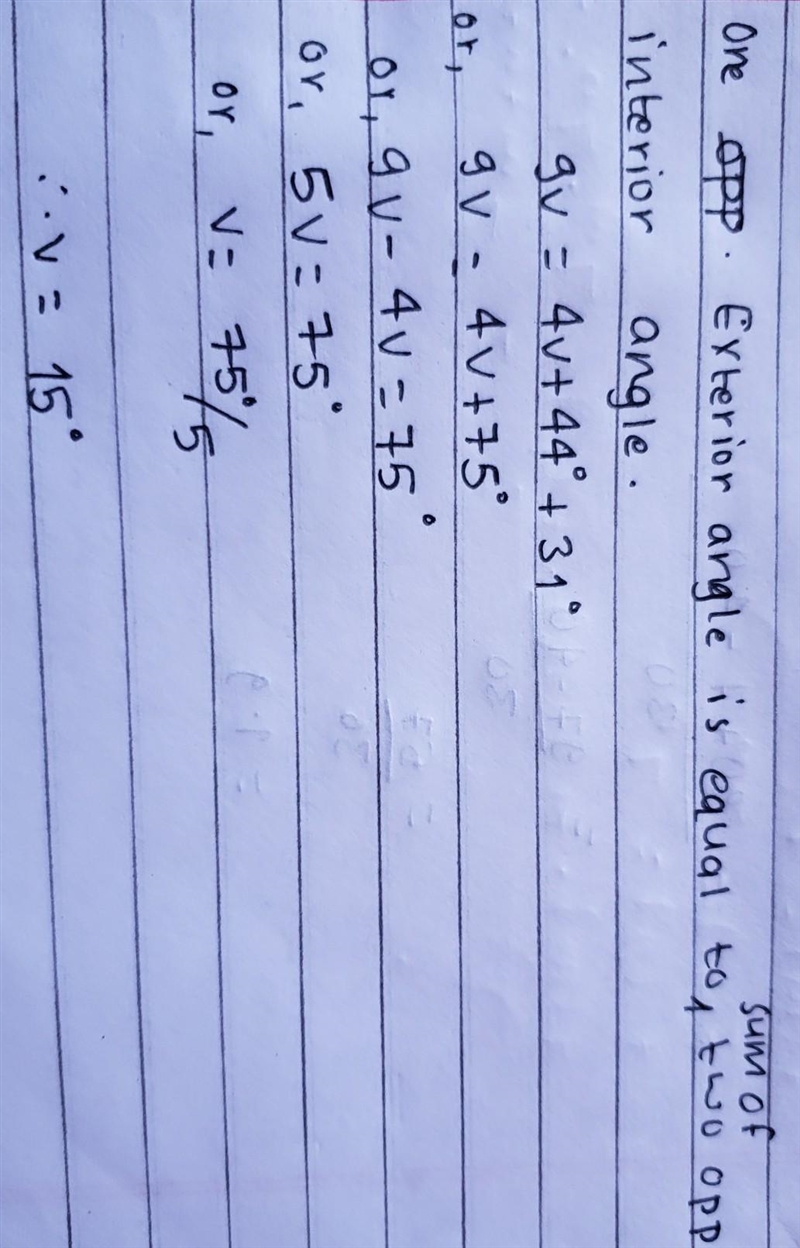 One opp. Exterior angle is equal to, sum of two opp
interior angle.
9v = 4v+44° + 31°
or, 9v = 4v+75°
or, 9v - 4v = 75°
or, 5v = 75°
or, v = 75°/5
∴ v = 15°